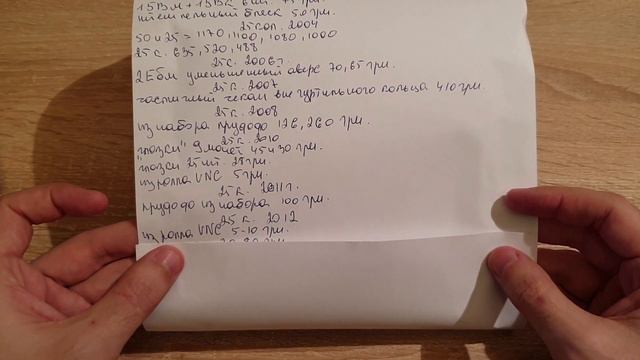 15Вм + 1БВк 6 шт. 75 грн.
штемпельный блеск 50 грн.
25 коп. 2004
50 и 25 = 1170, 1100, 1080, 1000
25 к. 635, 520, 488
25 к. 2006 г.
2ЕБм уменьшенный аверс 70, 65 грн.
25 к. 2007
частичный чекан вне гуртильного кольца 410 грн.
25 к. 2008
из набора прудодо 126, 260 грн.
25 к. 2010
"глэкси" 9 монет 45 и 30 грн.
глэкси 25 шт. 28 грн.
из ролла UNC 5 грн.
25 к. 2011 г.
прудодо из набора 100 грн.
25 к. 2012
из ролла UNC 5-10 грн.